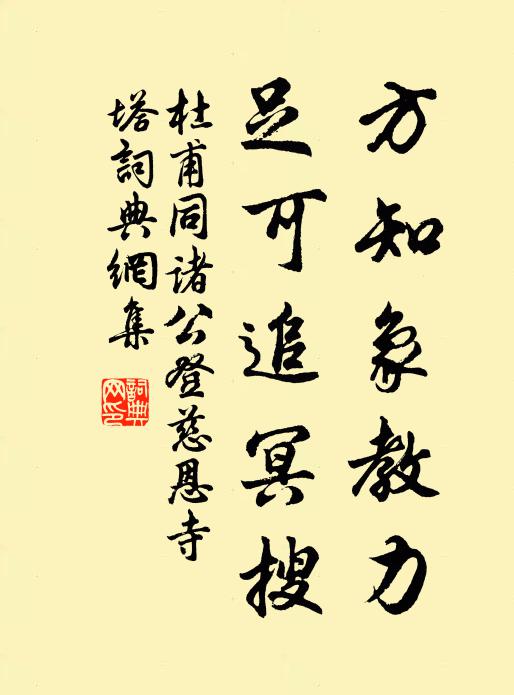 方知象教力
足可追冥搜
杜甫同诸公登慈恩寺
塔詞典網集
詞典网印